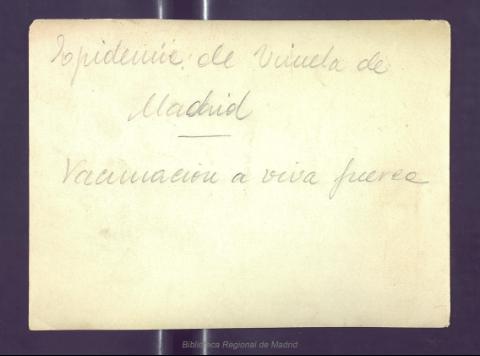 Epidemie de Viruela de
Madrid
Vacunación a viva fuerza
Biblioteca Regional de Madrid